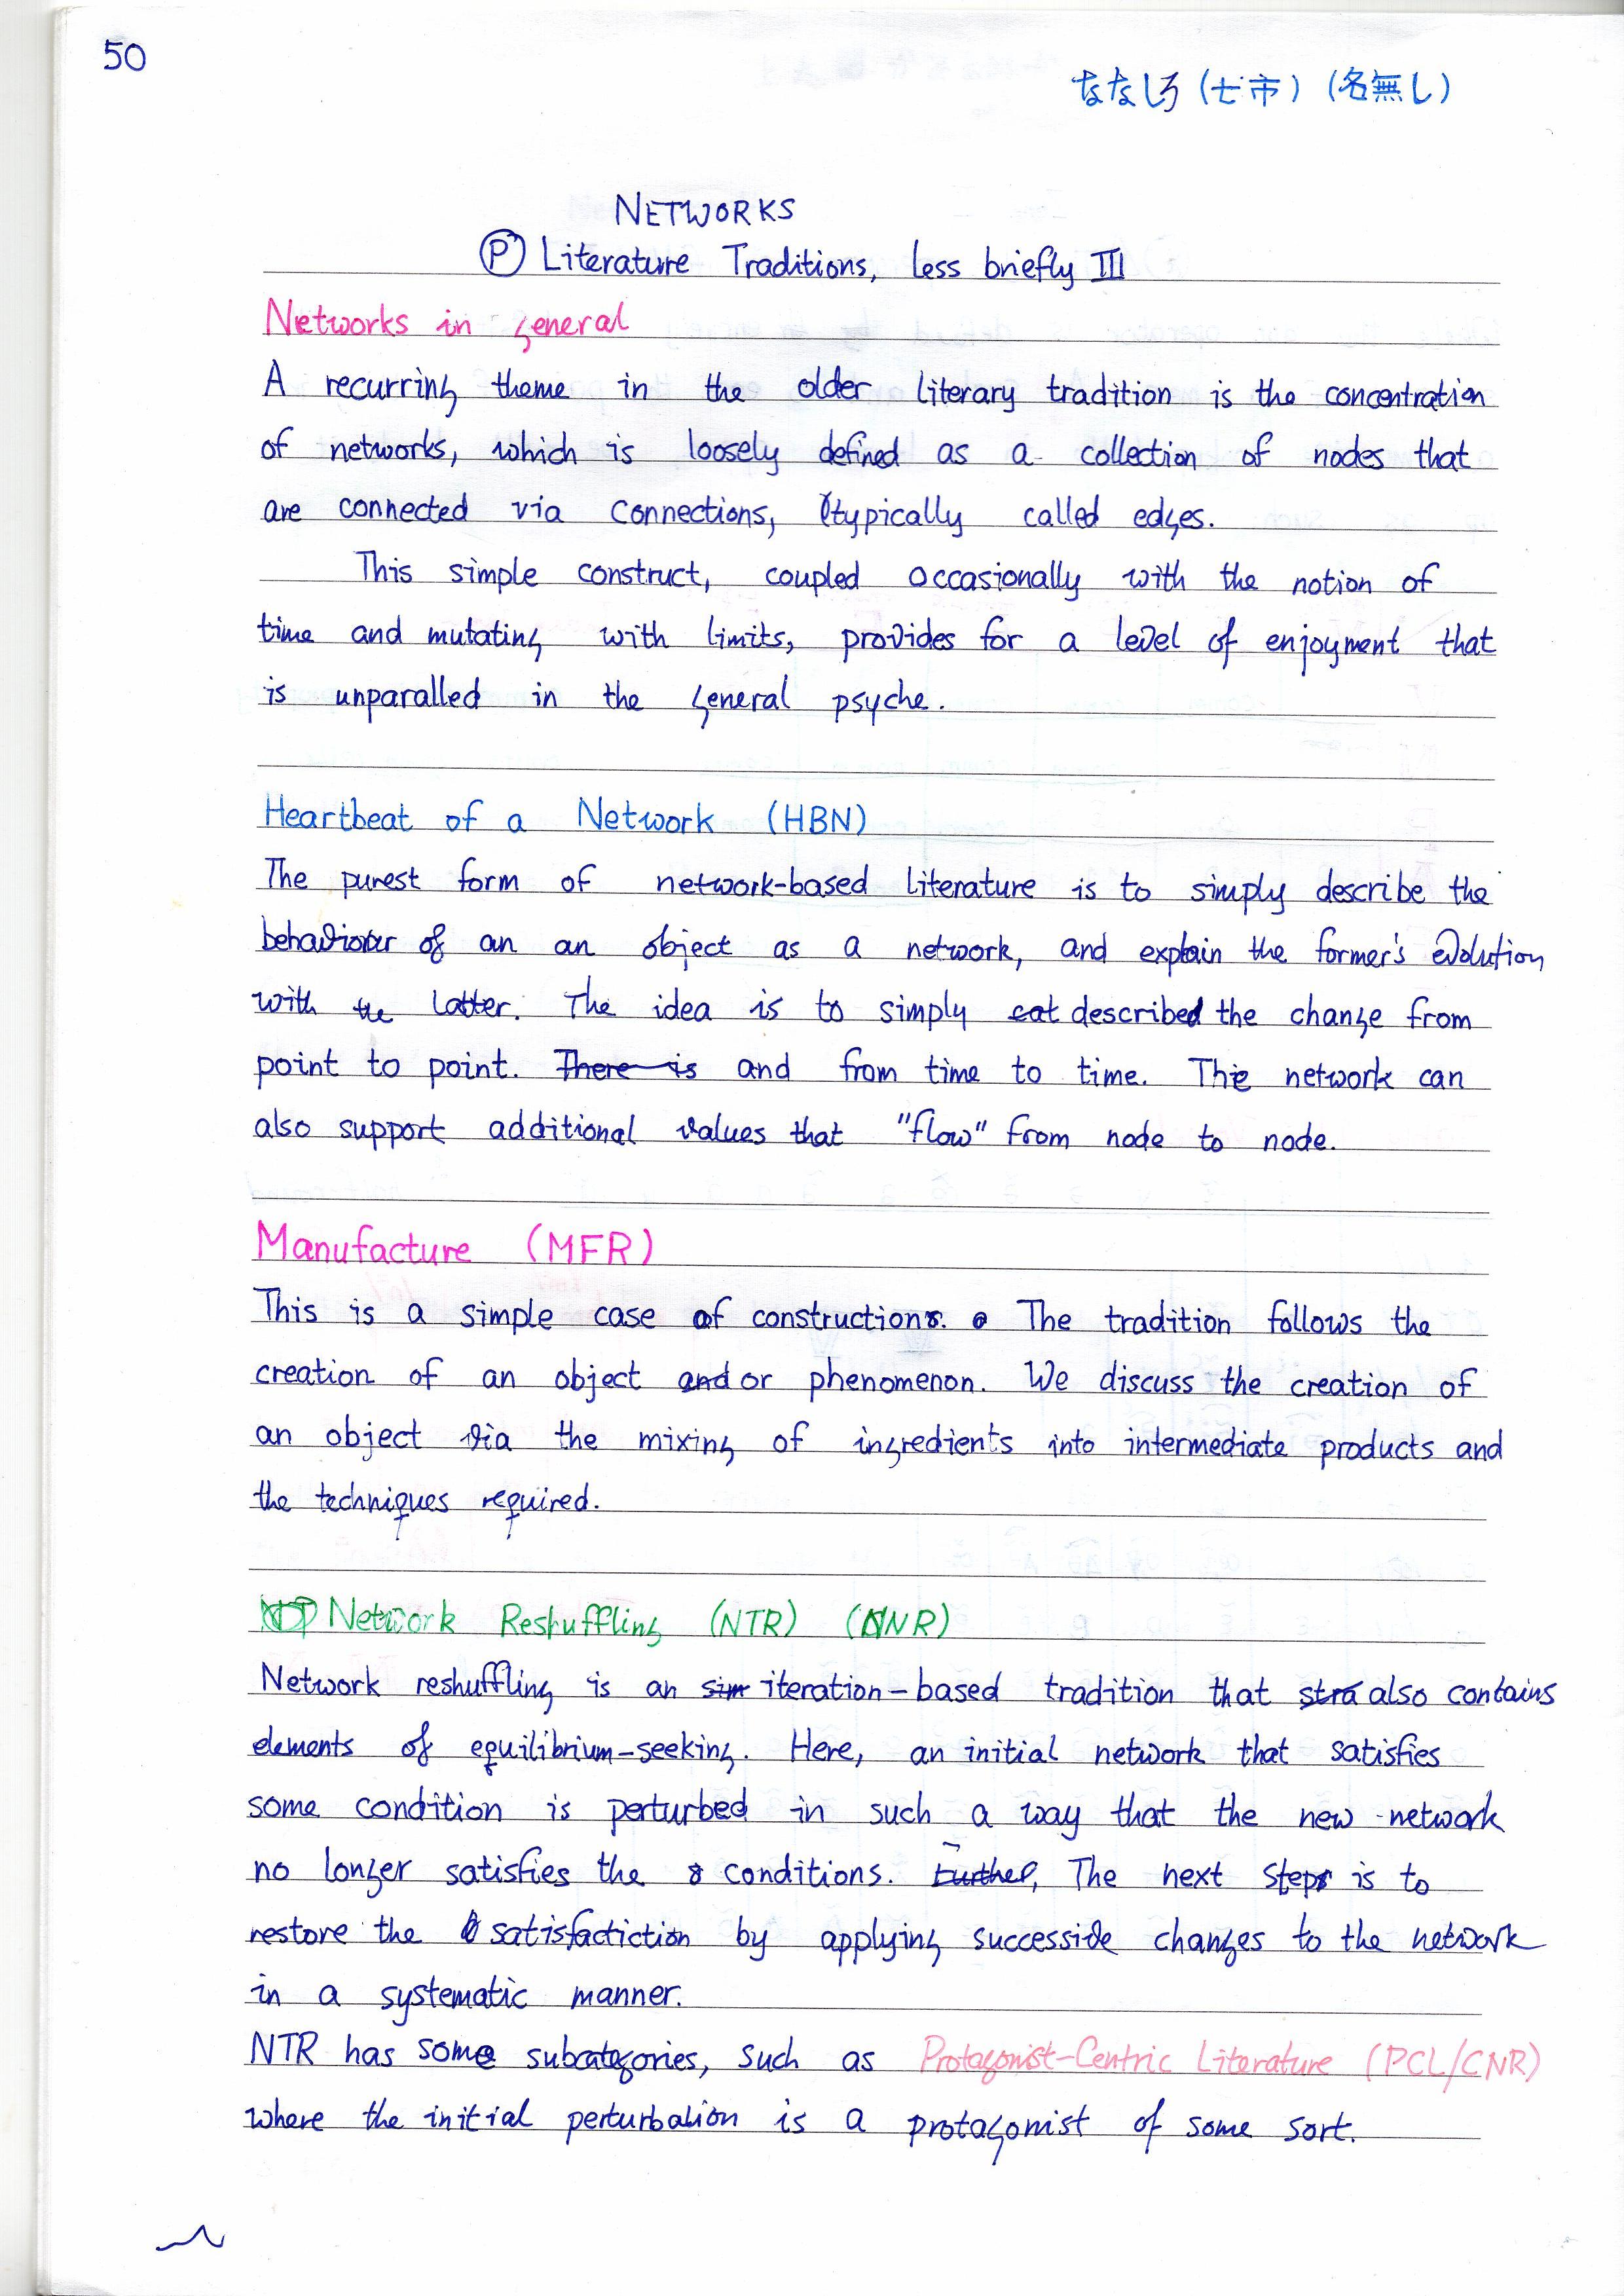 50
ななしろ (七市) (名無し)
NETWORKS
Ⓟ Literature Traditions, less briefly III
Networks in general
A recurring theme in the older literary tradition is the concentration
of networks, which is loosely defined as a collection of nodes that
are connected via connections, typically called edges.
This simple construct, coupled occasionally with the notion of
time and mutating with limits, provides for a level of enjoyment that
is unparalled in the general psyche.
Heartbeat of a Network (HBN)
The purest form of network-based literature is to simply describe the
behaviour of an an object as a network, and explain the former's evolution
with the latter. The idea is to simply cat described the change from
point to point. There is and from time to time. The network can
also support additional values that "flow" from node to node.
Manufacture (MFR)
This is a simple case of construction. The tradition follows the
creation of an object and or phenomenon. We discuss the creation of
an object via the mixing of ingredients into intermediate products and
the techniques required.
Network Reshuffling (NTR) (NR)
Network reshuffling is an sim iteration-based tradition that stra also contains
elements of equilibrium-seeking. Here, an initial network that satisfies
some condition is perturbed in such a way that the new network
no longer satisfies the conditions. Further, The next step is to
restore the satisfactiction by applying successive changes to the network
in a systematic manner.
NTR has some subcategories, such as Protagonist-Centric Literature (PCL/CNR)
where the initial perturbation is a protagonist of some sort.